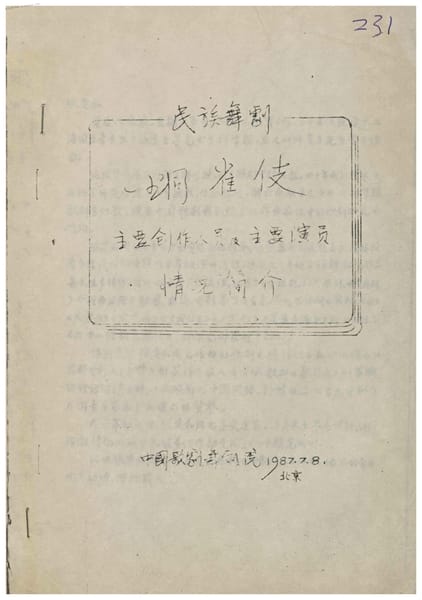 231
民族舞剧
铜雀伎
主要创作人员及主要演员
情况简介
中国歌剧舞剧院 1987.7.8.
北京